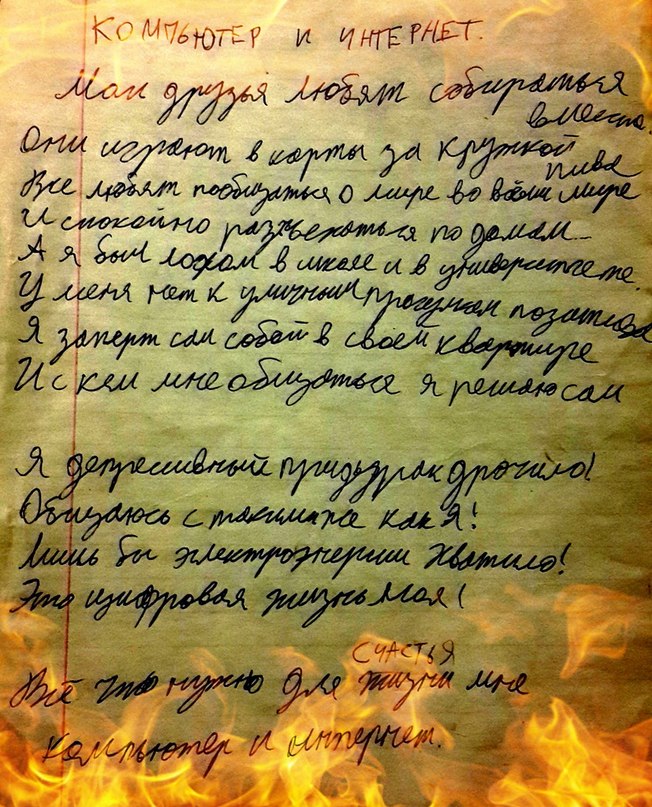 КОМПЬЮТЕР И ИНТЕРНЕТ.
Мои друзья любят собираться
вместе.
Они играют в карты за кружкой
пива
Все любят пообщаться о мире во всём мире
И спокойно разъехаться по домам...
А я был лохом в школе и в университете.
У меня нет к уличным прогулкам позитива
Я заперт сам собой в своей квартире
И с кем мне общаться я решаю сам
Я депрессивный придурак дрочила!
Общаюсь с такими же как я!
Лишь бы электроэнергии хватило!
Это цифровая жизнь моя!
СЧАСТЬЯ
Всё что нужно для жизни мне
Компьютер и интернет.